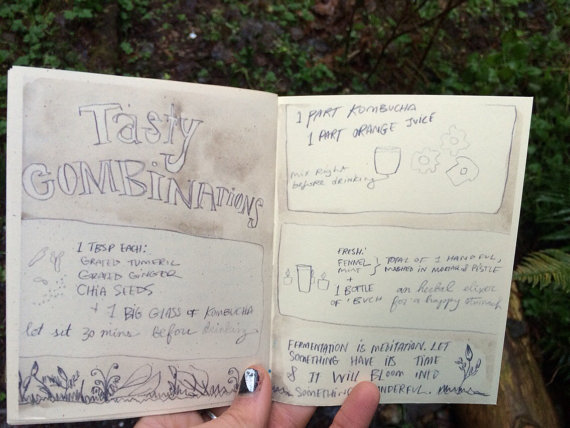 Tasty
COMBINATIONS
1 TBSP EACH:
GRATED TUMERIC
GRATED GINGER
CHIA SEEDS
+ 1 BIG GLASS OF KOMBUCHA
let sit 30 mins before drinking
1 PART KOMBUCHA
1 PART ORANGE JUICE
mix right
before drinking
FRESH:
FENNEL
MINT
} TOTAL OF 1 HANDFUL,
MASHED IN MORTAR & PISTLE
+
1 BOTTLE
OF 'BUCH
an herbal elixer
for a happy stomach
FERMENTATION IS MEDITATION. LET
SOMETHING HAVE ITS TIME
& IT WILL BLOOM INTO
SOMETHING WONDERFUL.